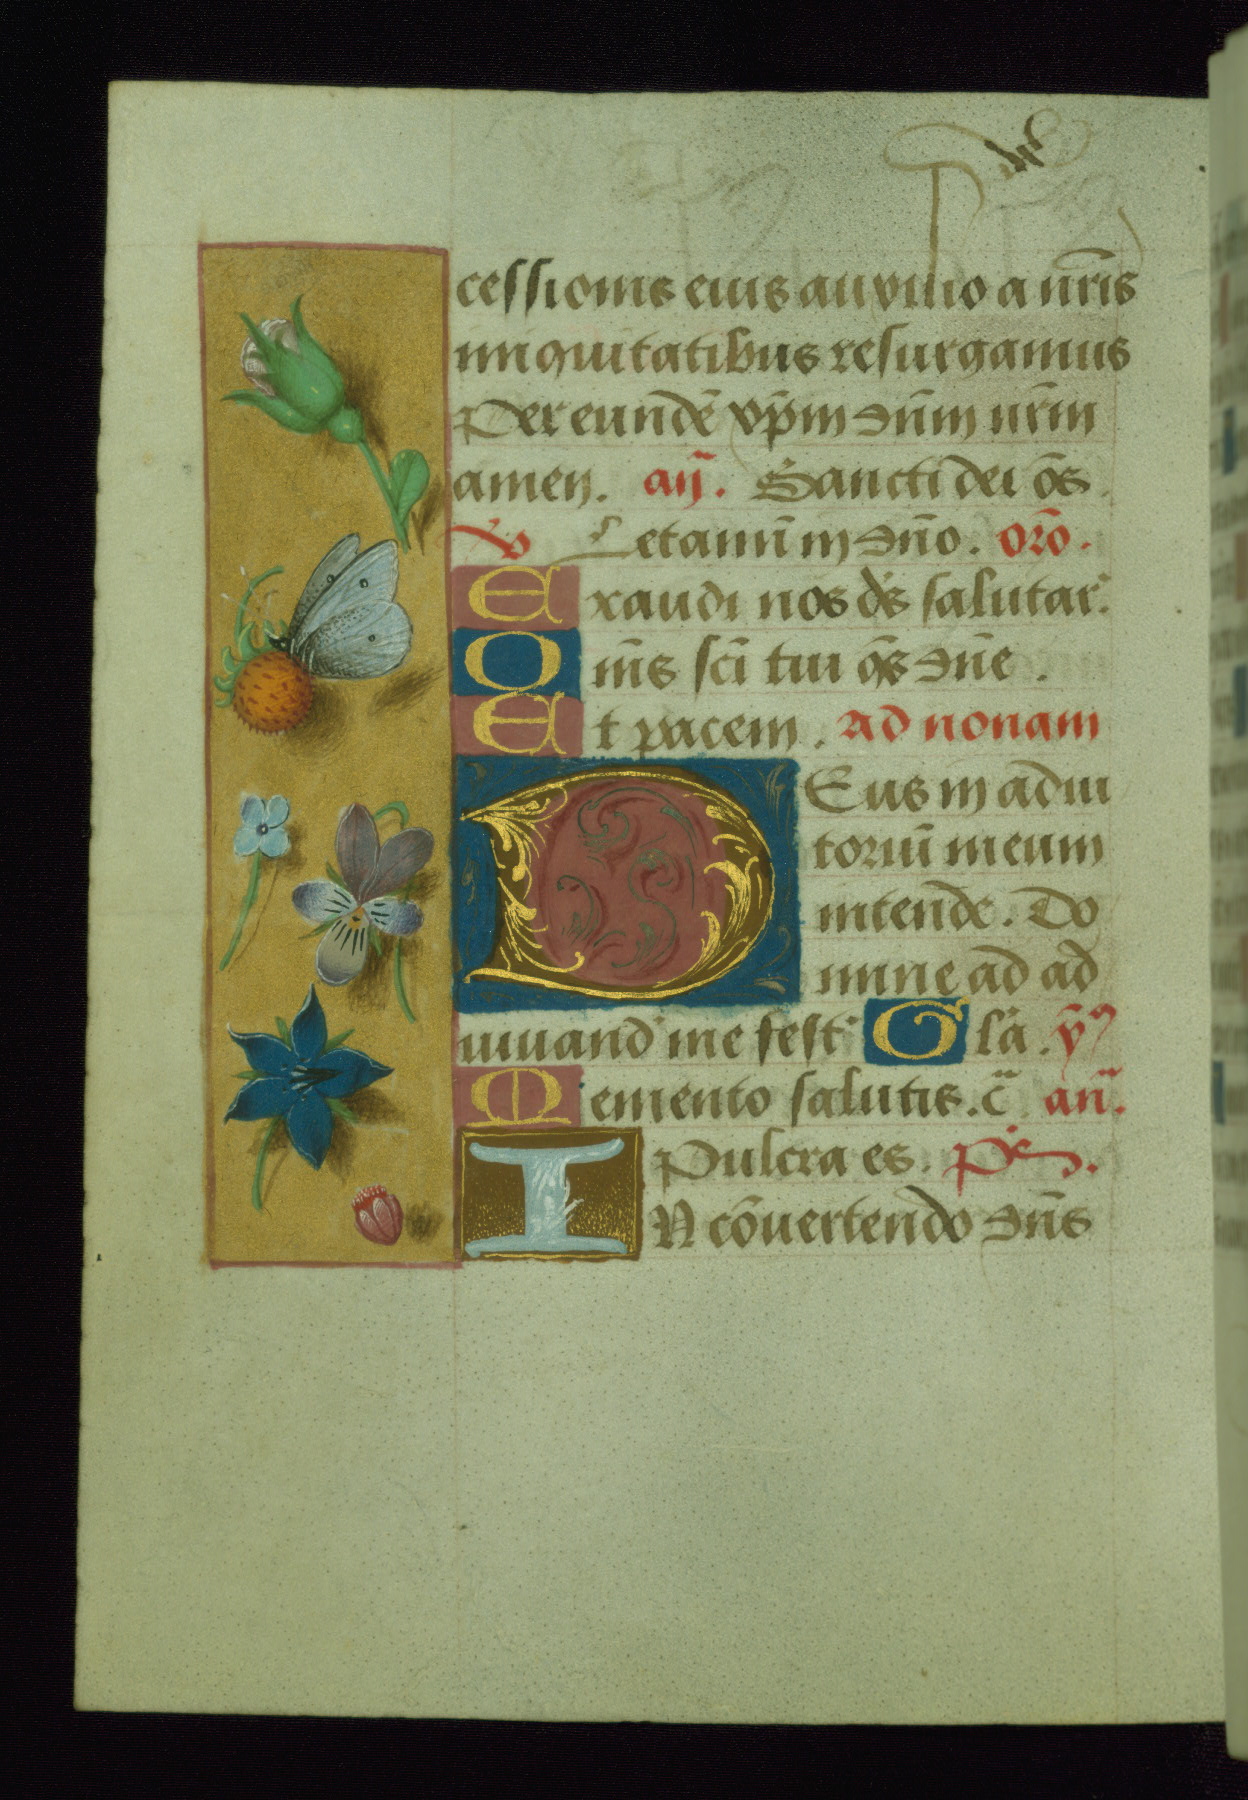 cessionis eius auxilio a nr̄is
iniquitatibus resurgamus
Per eundē xp̄m dn̄m nr̄m
amen. an̄. Sancti dei om̄s
℣ Letamini in dn̄o. orō.
Exaudi nos ds̄ salutar'
Om̄s scī tui qs̄ dn̄e.
Et pacem. Ad nonam
DEus in adiu
toriū meum
intende. Do
mine ad ad
iuuand' me fest' Glā. ym̄
Memento salutis. c̄ an̄.
Pulcra es. ps̄.
IN cōuertendo dn̄s